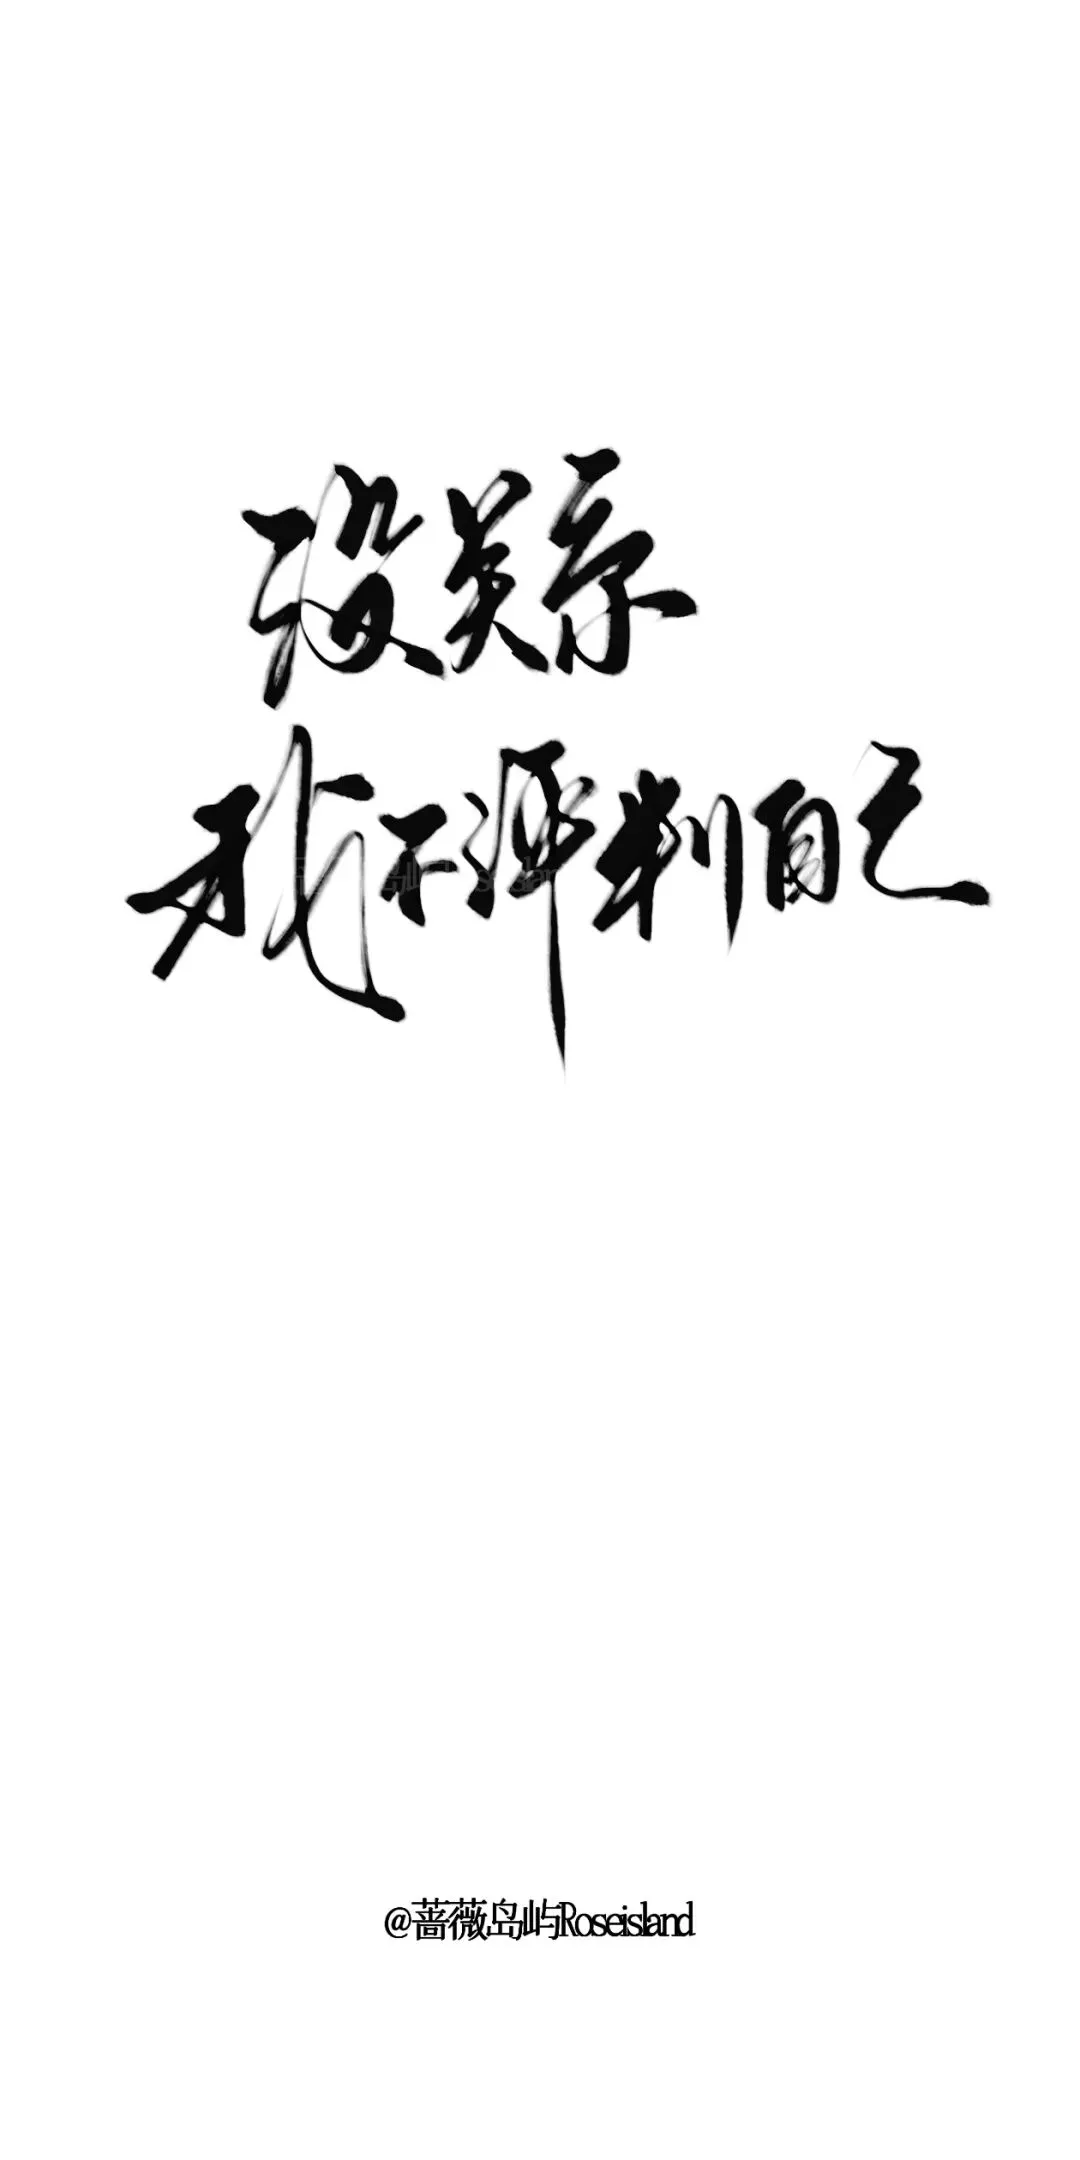 没关系
我不评判自己
@蔷薇岛屿Roseisland